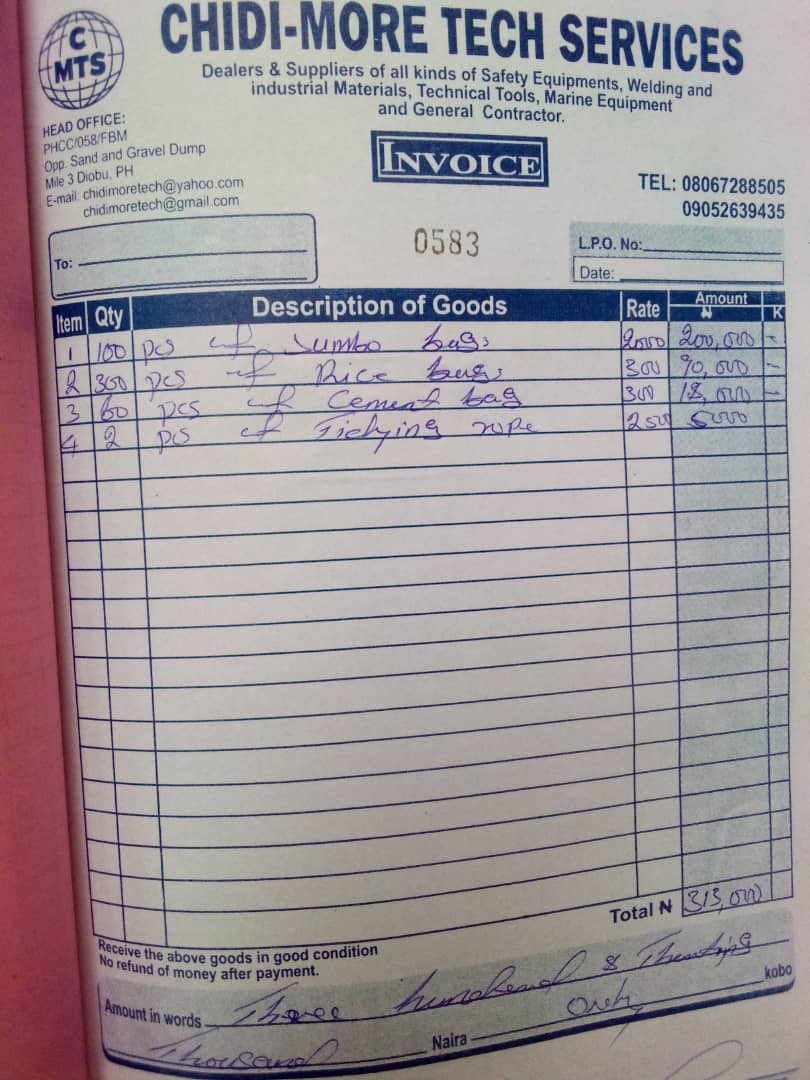 C
MTS
CHIDI-MORE TECH SERVICES
Dealers & Suppliers of all kinds of Safety Equipments, Welding and
industrial Materials, Technical Tools, Marine Equipment
and General Contractor.
HEAD OFFICE:
PHCC/058/FBM
Opp. Sand and Gravel Dump
Mile 3 Diobu, PH
E-mail: chidimoretech@yahoo.com
chidimoretech@gmail.com
INVOICE
TEL: 08067288505
09052639435
To:
0583
L.P.O. No:
Date:
Item Qty Description of Goods Rate Amount ₦ K
1 100 pcs of Jumbo bags 2000 200,000 -
2 300 pcs of Rice bags 300 90,000 -
3 60 pcs of Cement bag 300 18,000 -
4 2 pcs of rope 2500 5000
Total ₦ 313,000
Receive the above goods in good condition
No refund of money after payment.
Amount in words Three hundred &
Thousand Naira Only kobo